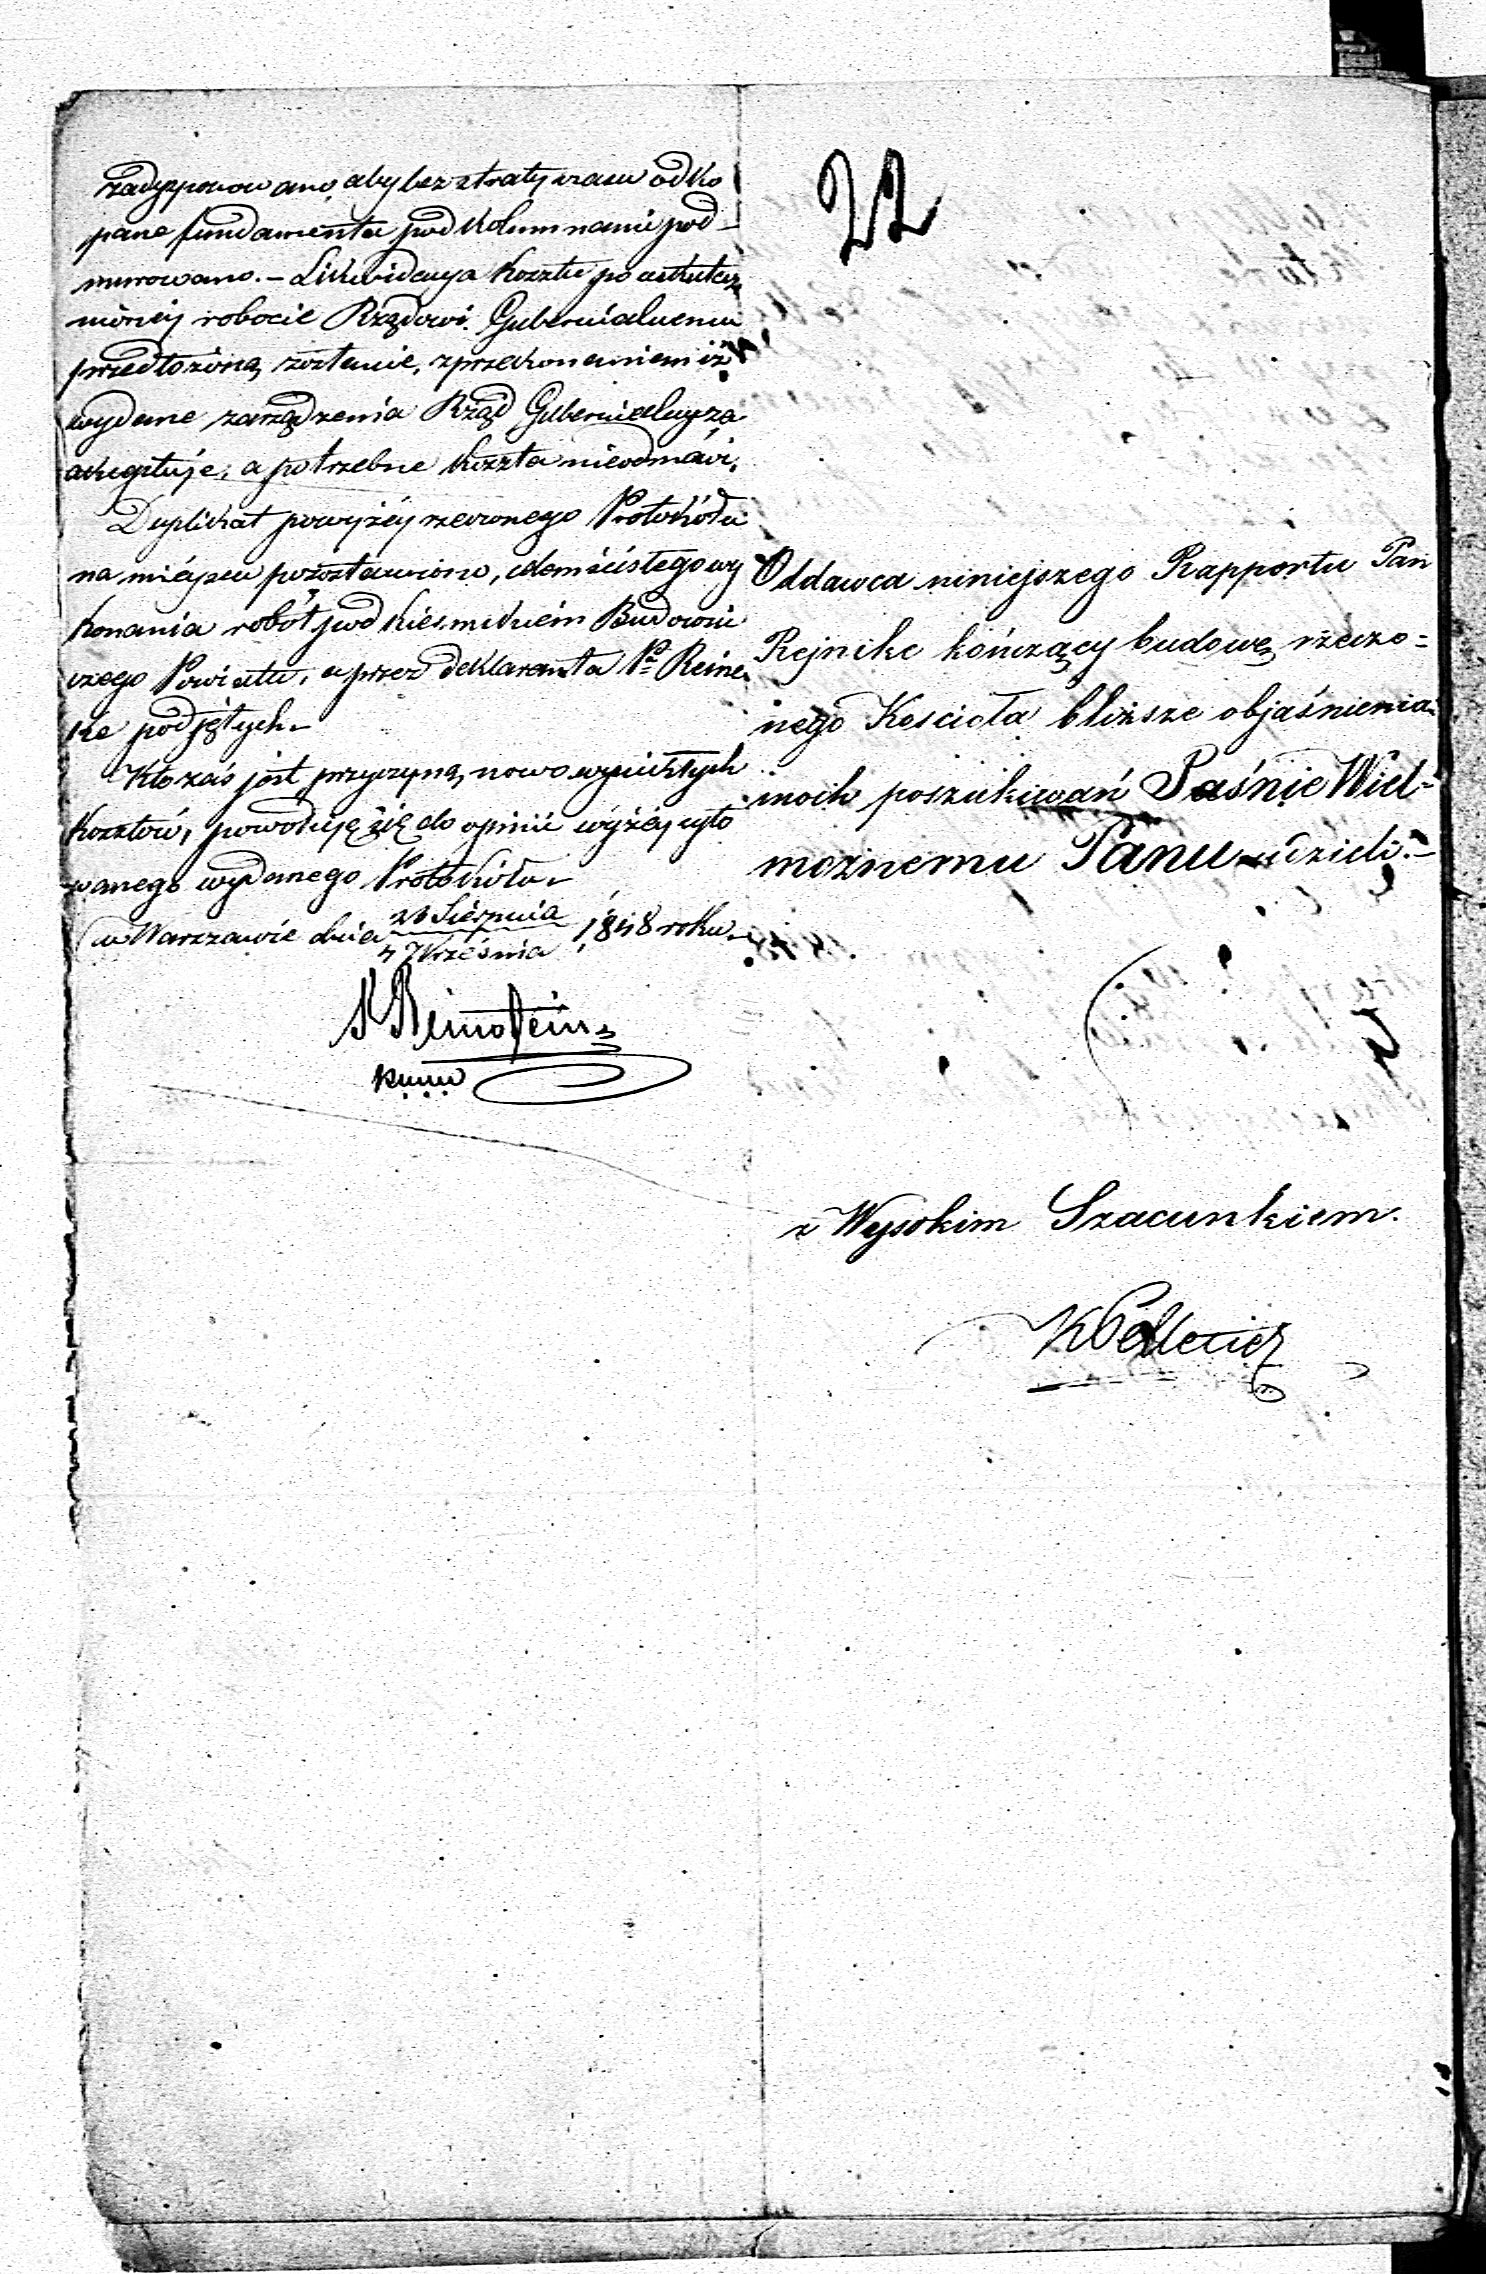 zadysponowano, aby bez straty czasu odko
pane fundamenta pod kolumnami pod-
murowano. – Likwidacya kosztu po uskutecz
nionéj robocie Rządowi Gubernialnemu
przedłożoną zostanie, z przekonaniem iż
wydane zarządzenia Rząd Gubernialny za
akceptuje, a potrzebne koszta nieodmówi,
Duplikat powyżéj rzeczonego Protokółu
na miéjscu pozostawiono, celem ścisłego wy
konania robót pod kierunkiem Budowni
czego Powiatu, a przez deklaranta Pa Reine
ke podjętych –
Kto zaś jest przyczyną nowo wynikłych
kosztów, powołuję się do opinii wyżéj cyto
wanego wydanego Protokółu –
w Warszawie dnia 26 Sierpnia
4 Września 1848 roku –
22
Oddawca niniejszego Rapportu Pan
Rejnike kończący budowę rzeczo=
nego Kościoła bliższe objaśnienia
moich poszukiwań Jaśnie Wiel=
możnemu Panu udzieli. –
z Wysokim Szacunkiem.